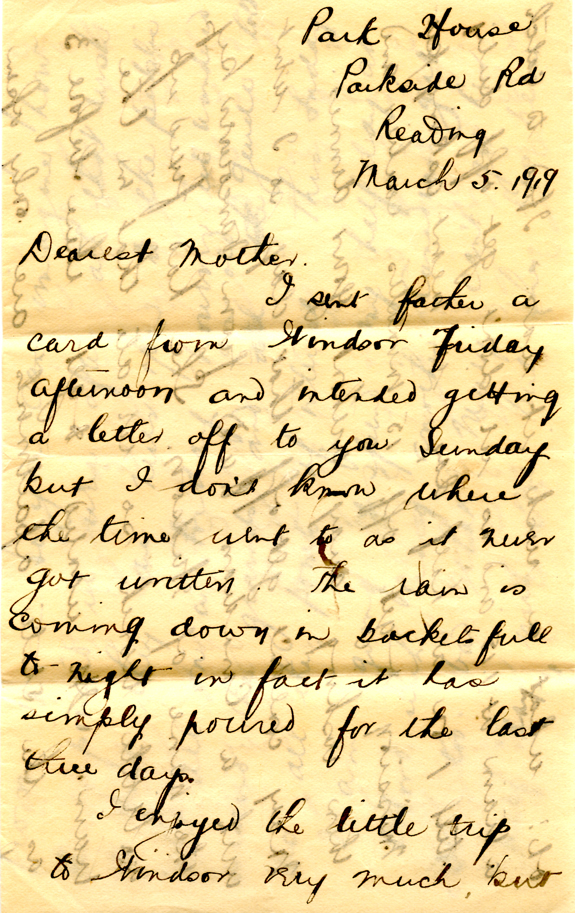 Park House
Parkside Rd
Reading
March 5. 1919
Dearest Mother.
I sent father a
card from Windsor Friday
afternoon and intended getting
a letter off to you Sunday
but I don't know where
the time went to as it never
got written. The rain is
coming down in bucketsfull
to-night in fact it has
simply poured for the last
three days.
I enjoyed the little trip
to Windsor very much, but